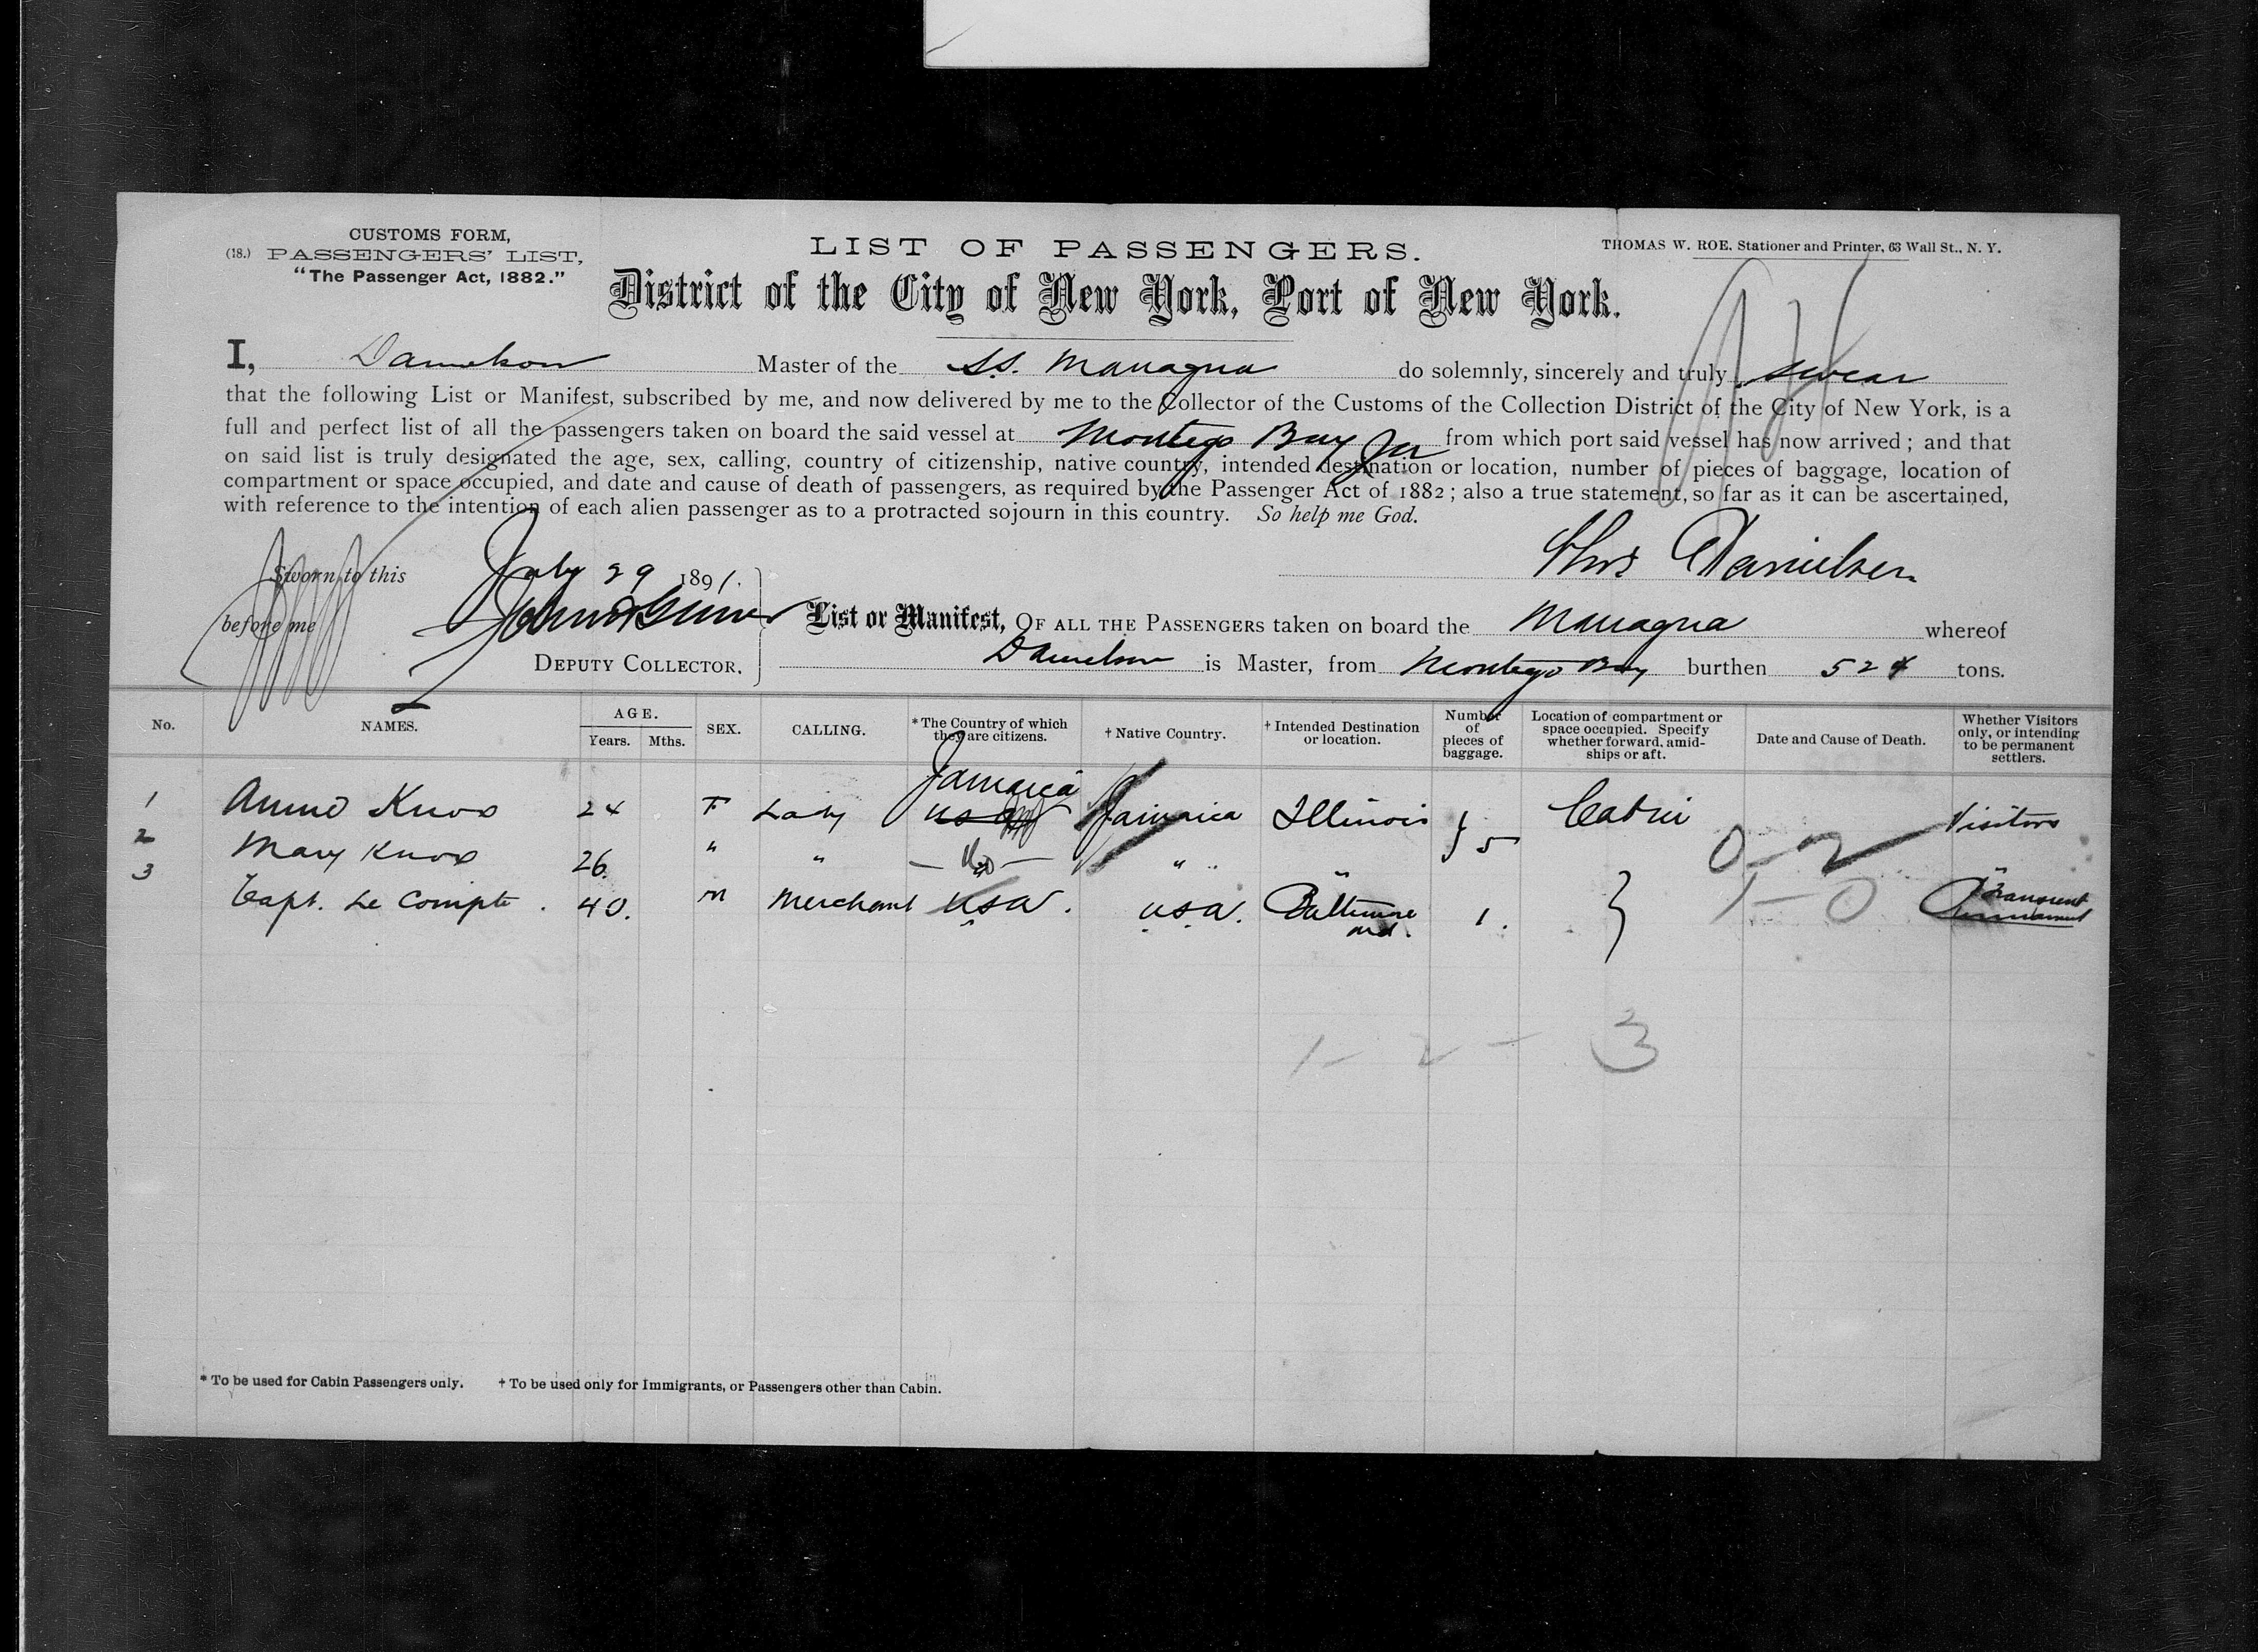 CUSTOMS FORM,
(18.) PASSENGERS' LIST,
"The Passenger Act, 1882."
LIST OF PASSENGERS.
THOMAS W. ROE, Stationer and Printer, 63 Wall St., N. Y.
District of the City of New York, Port of New York.
I, Danielson Master of the S.S. Managua do solemnly, sincerely and truly swear
that the following List or Manifest, subscribed by me, and now delivered by me to the Collector of the Customs of the Collection District of the City of New York, is a
full and perfect list of all the passengers taken on board the said vessel at Montego Bay Ja from which port said vessel has now arrived; and that
on said list is truly designated the age, sex, calling, country of citizenship, native country, intended destination or location, number of pieces of baggage, location of
compartment or space occupied, and date and cause of death of passengers, as required by the Passenger Act of 1882; also a true statement, so far as it can be ascertained,
with reference to the intention of each alien passenger as to a protracted sojourn in this country. So help me God.
Sworn to this July 29 1891.
Danielsen
before me
List or Manifest, OF ALL THE PASSENGERS taken on board the Managua whereof
DEPUTY COLLECTOR.
Danielson is Master, from Montego Bay burthen 524 tons.
No. NAMES. AGE. Years. Mths. SEX. CALLING. *The Country of which they are citizens. † Native Country. † Intended Destination or location. Number of pieces of baggage. Location of compartment or space occupied. Specify whether forward, amidships or aft. Date and Cause of Death. Whether Visitors only, or intending to be permanent settlers.
Jamaica
1 Annie Knox 24 F Lady USA Jamaica Illinois } 5 Cabin Visitors
2 Mary Knox 26 " " " " " 0-2 "
3 Capt. Le Compte. 40. M Merchant USA. USA. Baltimore Md. 1. } 1-0 Transient
1-2-3
* To be used for Cabin Passengers only. † To be used only for Immigrants, or Passengers other than Cabin.